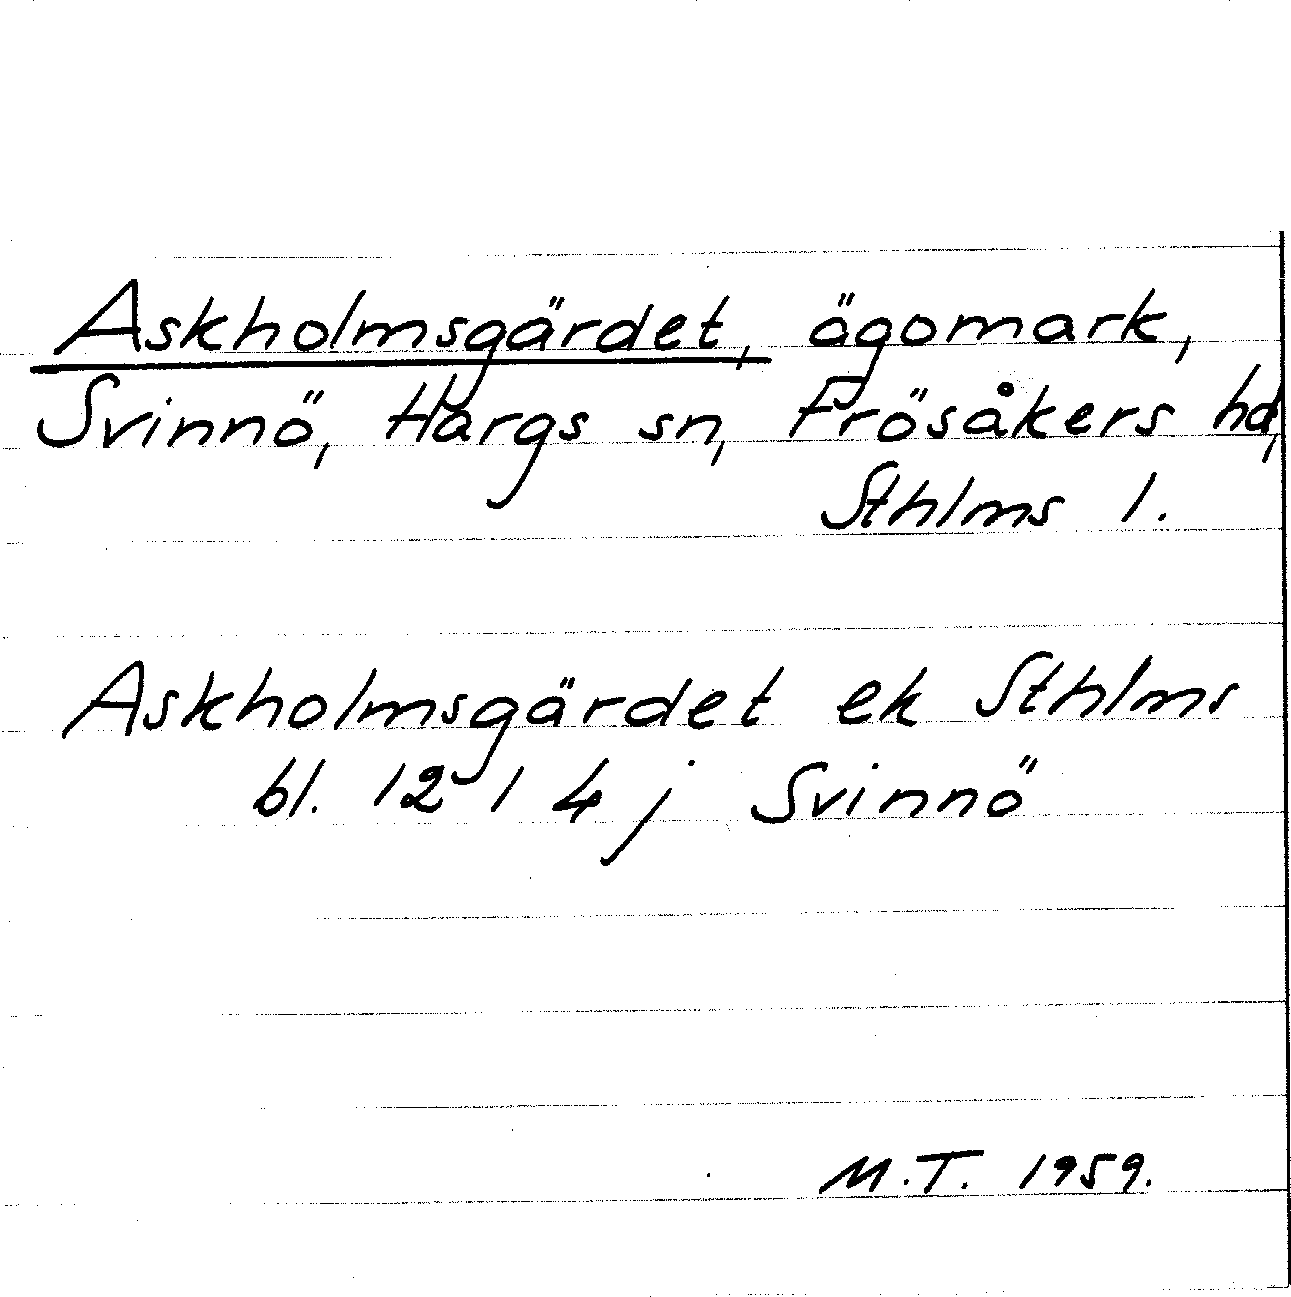 Askholmsgärdet, ägomark,
Svinnö, Hargs sn, Frösåkers hd,
Sthlms l.
Askholmsgärdet ek Sthlms
bl. 12 I 4 j Svinnö
M.T. 1959.